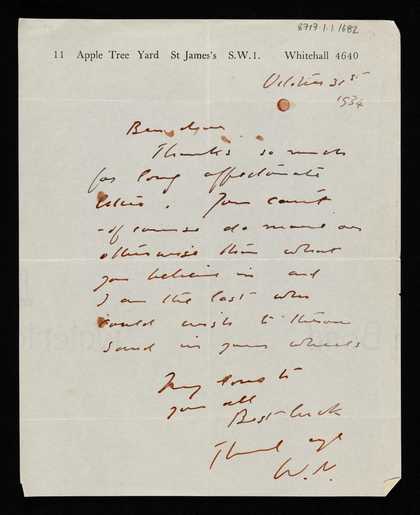 8717.1.1.1682
11 Apple Tree Yard St James's S.W.1. Whitehall 4640
October 31st
1934
Ben dear
Thanks so much
for long affectionate
letter. You can't
of course do more or
otherwise than what
you believe in and
I am the last who
would wish to throw
sand in your wheels
My love to
you all
Best luck
W.N.